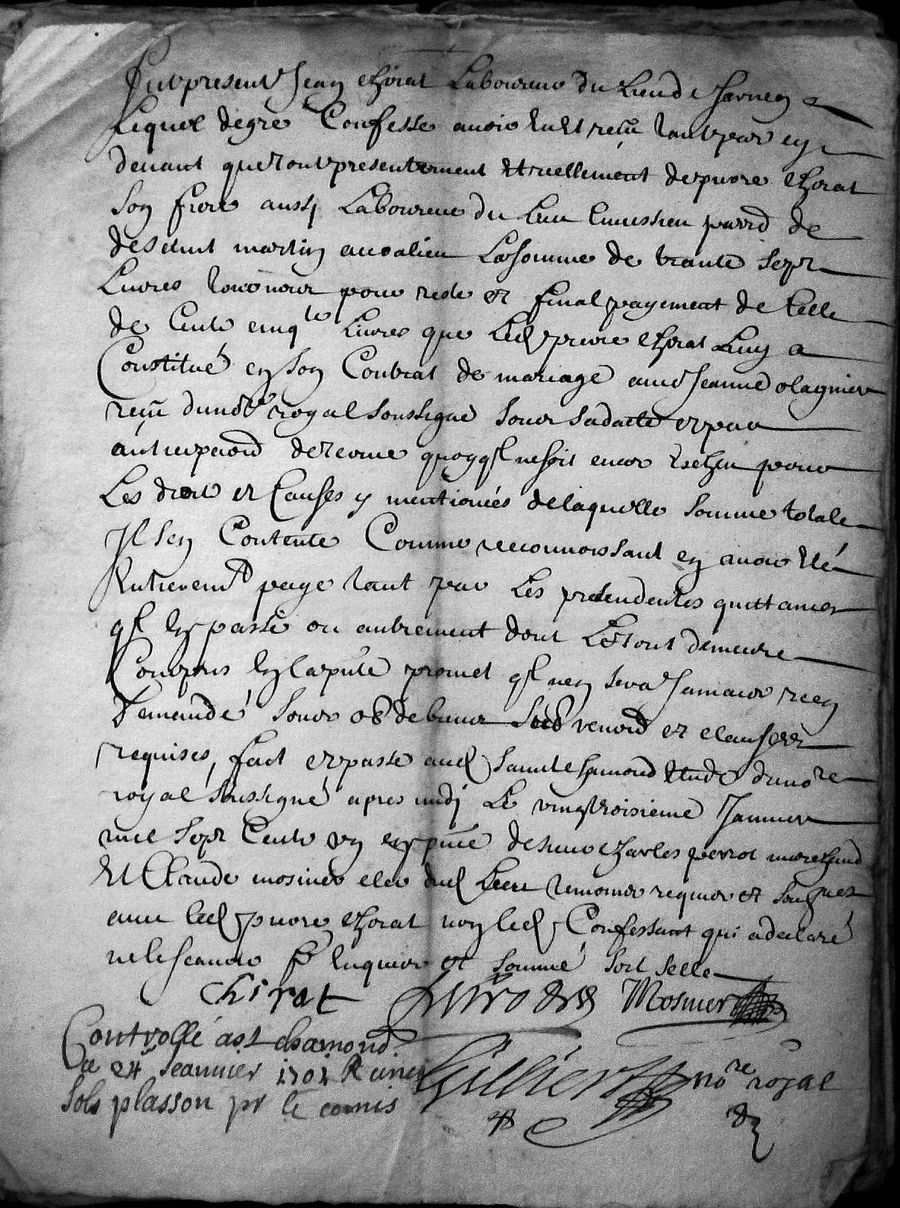 fut present Jean Chirat Laboureur du Lieu de
Lequel de gré Confesse avoir eu et reçu tant par cy
devant que tout presentement et reellement de piere Chirat
son frere aussy Laboureur du Lieu parr de
de saint martin la somme de trante sept
Livres tournois pour reste et final payement de celle
de Cent cinqte Livres que led piere Chirat Luy a
Constitué en son Contrat de mariage avec Jeanne olagnier
reçu du nore royal soussigné sous sa datte et par
de terme quoyql ne soit encor eschu pour
Les droit et Causes y mentionés de laquelle somme totale
Il s'en Contente Comme reconnoissant en avoir eté
Entieremt payé tant par Les precedentes quittances
ql en passé ou autrement dont Les sont demeuré
Compris en la pnte promet ql n'en sera Jamais rien
Demandé sous ob de biens renond et clauses
requises, fait et passé aud saint chamond etude du nore
royal soussigné apres midj Le vingt troisieme Janvier
mil sept Cent un en pnce de sieur charles perrot marchand
Et Claude mosnier clerc dud Lieu temoins requis et soubsnes
avec led piere chirat non led Confessant qui a declaré
ne le scavoir enquis et sommé soit sellé
Chirat Mosnier
Controllé a st chamond
Ce 24e Jeanvier 1701 R cinq
sols plasson pr le comis
Gillier nore royal